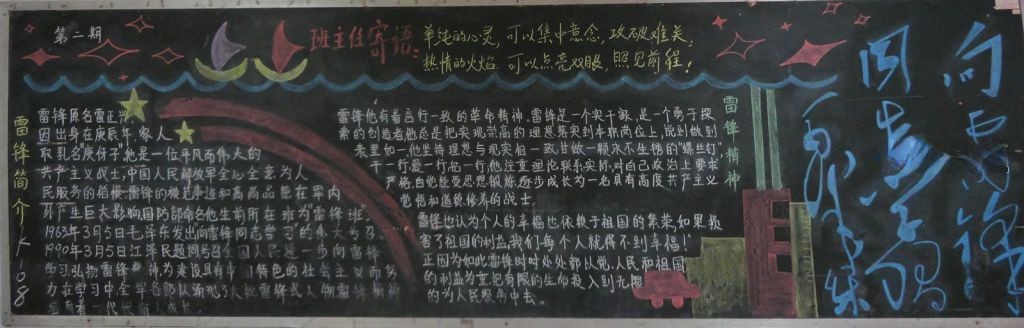 第二期
班主任寄语:
单纯的心灵,可以集中意念,攻破难关;
热情的火焰,可以点亮双眼,照见前程!
向雷锋
同志学习
雷锋简介
K-108
雷锋原名雷正兴
因出身在庚辰年家人
取乳名"庚伢子"他是一位平凡而伟大的
共产主义战士,中国人民解放军全心全意为人
民服务的楷模雷锋的模范事迹和高尚品德在军内
外产生巨大影响国防部命名他生前所在班为"雷锋班"
1963年3月5日毛泽东发出向雷锋同志学习的伟大号召
1990年3月5日江泽民题词号召全国人民进一步向雷锋
学习弘扬雷锋精神为建设具有中国特色的社会主义而努
力在学习中全军各部队涌现了大批雷锋式人物雷锋精神
雷锋精神
雷锋他有着言行一致的革命精神,雷锋是一个实干家,是一个勇于探
索的创造者他总是把实现崇高的理想落实到本职岗位上,说到做到
表里如一他坚持理想与现实相一致,甘做一颗永不生锈的"螺丝钉"
干一行爱一行钻一行,他注重理论联系实际,对自己政治上要求
严格,自觉经受思想锻炼,逐步成长为一名具有高度共产主义
觉悟和道德修养的战士。
雷锋也认为个人的幸福也依赖于祖国的繁荣,如果损
害了祖国的利益,我们每个人就得不到幸福!"
正因为如此雷锋时时处处都以党、人民和祖国
的利益为重把有限的生命投入到无限
的为人民服务中去。